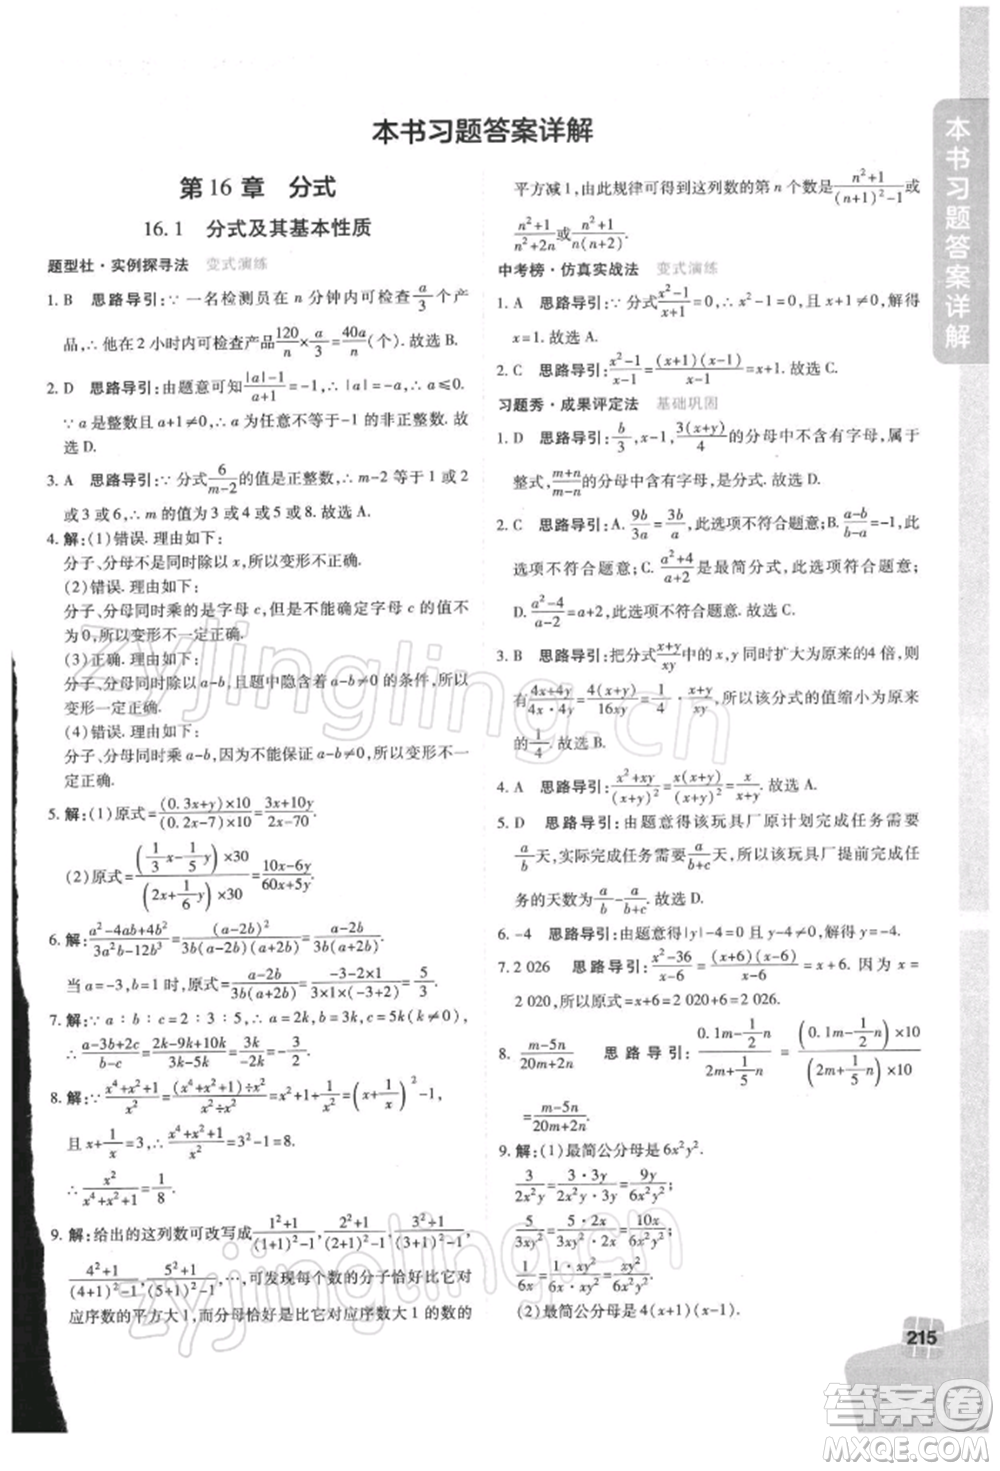 本书习题答案详解
第 16 章　分式
16.1　分式及其基本性质
题型社·实例探寻法　变式演练
1. B　思路导引:∵ 一名检测员在 n 分钟内可检查 a/3 个产
品,∴ 他在 2 小时内可检查产品 120/n × a/3 = 40a/n (个). 故选 B.
2. D　思路导引:由题意可知 (|a|-1)/(a+1) = -1,∴ |a| = -a,∴ a≤0.
∵ a 是整数且 a+1≠0,∴ a 为任意不等于-1 的非正整数. 故
选 D.
3. A　思路导引:∵ 分式 6/(m-2) 的值是正整数,∴ m-2 等于 1 或 2
或 3 或 6,∴ m 的值为 3 或 4 或 5 或 8. 故选 A.
4. 解:(1)错误. 理由如下:
分子、分母不是同时除以 x,所以变形不正确.
(2)错误. 理由如下:
分子、分母同时乘的是字母 c,但是不能确定字母 c 的值不
为 0,所以变形不一定正确.
(3)正确. 理由如下:
分子、分母同时除以 a-b,且题中隐含着 a-b≠0 的条件,所以
变形一定正确.
(4)错误. 理由如下:
分子、分母同时乘 a-b,因为不能保证 a-b≠0,所以变形不一
定正确.
5. 解:(1)原式 = ((0.3x+y)×10)/((0.2x-7)×10) = (3x+10y)/(2x-70)
(2)原式 = ((1/3 x - 1/5 y)×30)/((2x+1/6 y)×30) = (10x-6y)/(60x+5y).
6. 解: (a²-4ab+4b²)/(3a²b-12b³) = (a-2b)²/(3b(a-2b)(a+2b)) = (a-2b)/(3b(a+2b)).
当 a=-3,b=1 时, (a-2b)/(3b(a+2b)) = (-3-2×1)/(3×1×(-3+2)) = 5/3
7. 解:∵ a∶b∶c=2∶3∶5,∴ a=2k,b=3k,c=5k(k≠0),
∴ (a-3b+2c)/(b-c) = (2k-9k+10k)/(3k-5k) = -3/2
8. 解:∵ (x⁴+x²+1)/x² = ((x⁴+x²+1)÷x²)/(x²÷x²) = x²+1+1/x² = (x+1/x)²-1
且 x+1/x=3,∴ (x⁴+x²+1)/x² = 3²-1=8.
∴ x²/(x⁴+x²+1) = 1/8
9. 解:给出的这列数可改写成 (1²+1)/((1+1)²-1), (2²+1)/((2+1)²-1), (3²+1)/((3+1)²-1),
(4²+1)/((4+1)²-1), (5²+1)/((5+1)²-1),…,可发现每个数的分子恰好比它对
应序数的平方大 1,而分母恰好是比它对应序数大 1 的数的
平方减 1,由此规律可得到这列数的第 n 个数是 (n²+1)/((n+1)²-1) 或
(n²+1)/(n²+2n) 或 (n²+1)/(n(n+2)).
中考榜·仿真实战法　变式演练
1. A　思路导引:∵ 分式 (x²-1)/(x+1) = 0,∴ x²-1=0,且 x+1≠0,解得
x=1. 故选 A.
2. C　思路导引: (x²-1)/(x-1) = ((x+1)(x-1))/(x-1) = x+1. 故选 C.
习题秀·成果评定法　基础巩固
1. D　思路导引: b/3, x-1, (3(x+y))/4 的分母中不含有字母,属于
整式, (m+n)/(m-n) 的分母中含有字母,是分式. 故选 D.
2. C　思路导引:A. 9b/3a = 3b/a,此选项不符合题意;B. (a-b)/(b-a) = -1,此
选项不符合题意;C. (a²+4)/(a+2) 是最简分式,此选项符合题意;
D. (a²-4)/(a-2) = a+2,此选项不符合题意. 故选 C.
3. B　思路导引:把分式 (x+y)/xy 中的 x,y 同时扩大为原来的4 倍,
有 (4x+4y)/(4x·4y) = (4(x+y))/16xy = 1/4 · (x+y)/xy,所以该分式的值缩小为原来
的 1/4. 故选 B.
4. A　思路导引: (x²+xy)/(x+y)² = (x(x+y))/(x+y)² = x/(x+y). 故选 A.
5. D　思路导引:由题意得该玩具厂原计划完成任务需要
a/b 天,实际完成任务需要 a/(b+c) 天,所以该玩具厂提前完成任务
的天数为 a/b - a/(b+c). 故选 D.
6. -4　思路导引:由题意得|y|-4=0 且 4-y≠0,解得 y=-4.
7. 2 026　思路导引: (x²-36)/(x-6) = ((x+6)(x-6))/(x-6) = x+6. 因为 x =
2 020,所以原式=x+6=2 026.
8. (m-5n)/(20m+2n)　思路导引: (0.1m-1/2 n)/(2m+1/5 n) = ((0.1m-1/2 n)×10)/((2m+1/5 n)×10)
= (m-5n)/(20m+2n).
9. 解:(1)最简公分母是 6x²y².
3/2x²y = (3·3y)/(2x²y·3y) = 9y/6x²y²;
5/6x²y² = 5/6x²y²;
(2)最简公分母是 4(x+1)(x-1).
本书习题答案详解
215
答案圈
MXQE.COM
zyjingling.cn
zyjingling.cn